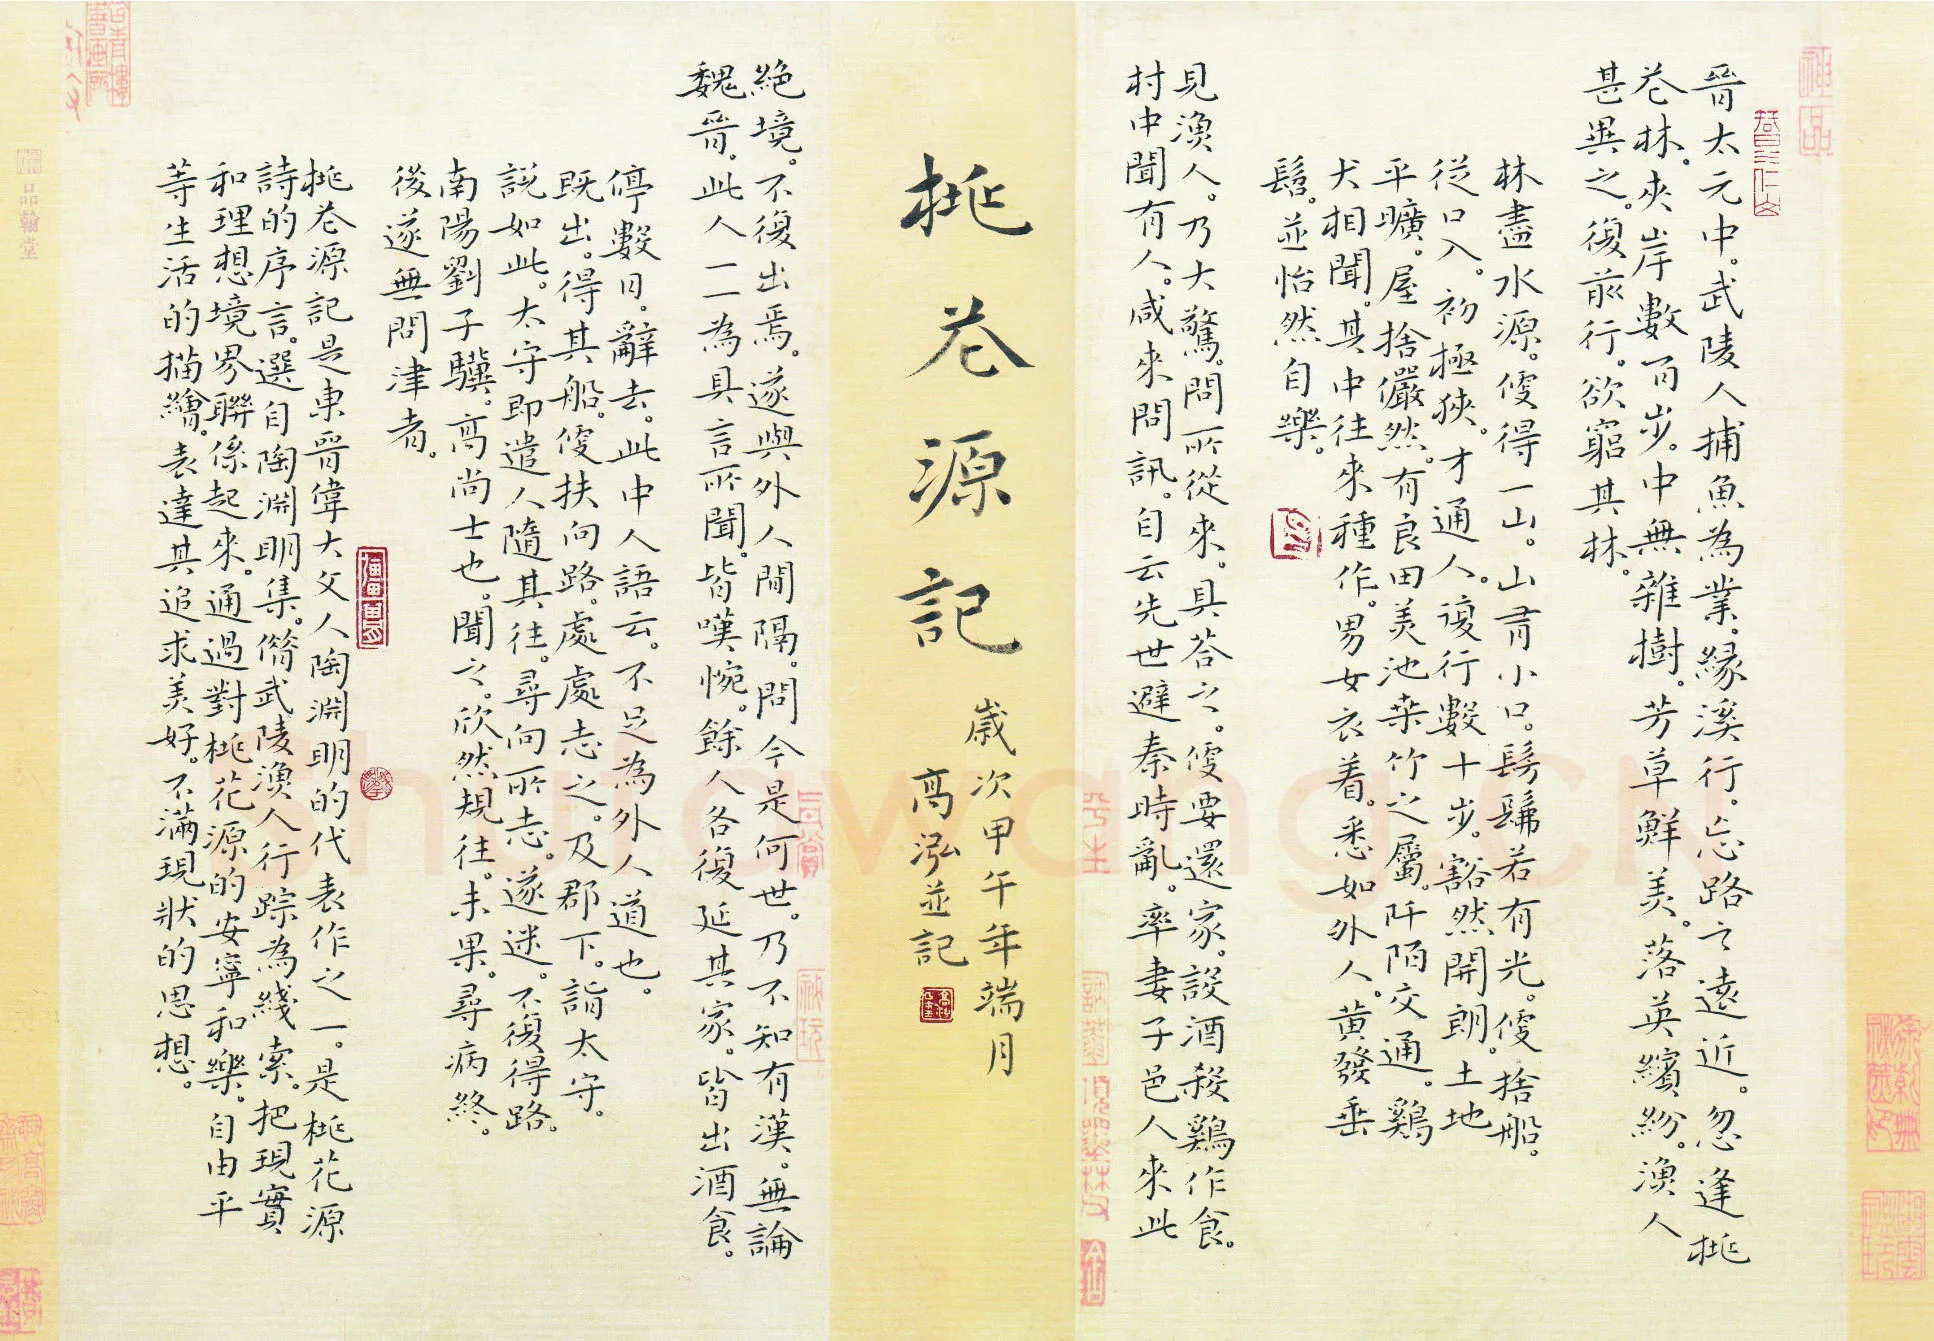 晉太元中。武陵人捕魚為業。緣溪行。忘路之遠近。忽逢桃
花林。夾岸數百步。中無雜樹。芳草鮮美。落英繽紛。漁人
甚異之。復前行。欲窮其林。
林盡水源。便得一山。山有小口。髣髴若有光。便捨船。
從口入。初極狹。才通人。復行數十步。豁然開朗。土地
平曠。屋捨儼然。有良田美池桑竹之屬。阡陌交通。鷄
犬相聞。其中往來種作。男女衣着。悉如外人。黃發垂
髫。並怡然自樂。
見漁人。乃大驚。問所從來。具答之。便要還家。設酒殺鷄作食。
村中聞有人。咸來問訊。自云先世避秦時亂。率妻子邑人來此
桃花源記
歲次甲午年端月
高泓並記
絕境。不復出焉。遂與外人間隔。問今是何世。乃不知有漢。無論
魏晉。此人一一為具言所聞。皆嘆惋。餘人各復延其家。皆出酒食。
停數日。辭去。此中人語云。不足為外人道也。
既出。得其船。便扶向路。處處志之。及郡下。詣太守。
說如此。太守即遣人隨其往。尋向所志。遂迷。不復得路。
南陽劉子驥。高尚士也。聞之。欣然規往。未果。尋病終。
後遂無問津者。
桃花源記是東晉偉大文人陶淵明的代表作之一。是桃花源
詩的序言。選自陶淵明集。借武陵漁人行踪為綫索。把現實
和理想境界聯係起來。通過對桃花源的安寧和樂。自由平
等生活的描繪。表達其追求美好。不滿現狀的思想。
品翰堂